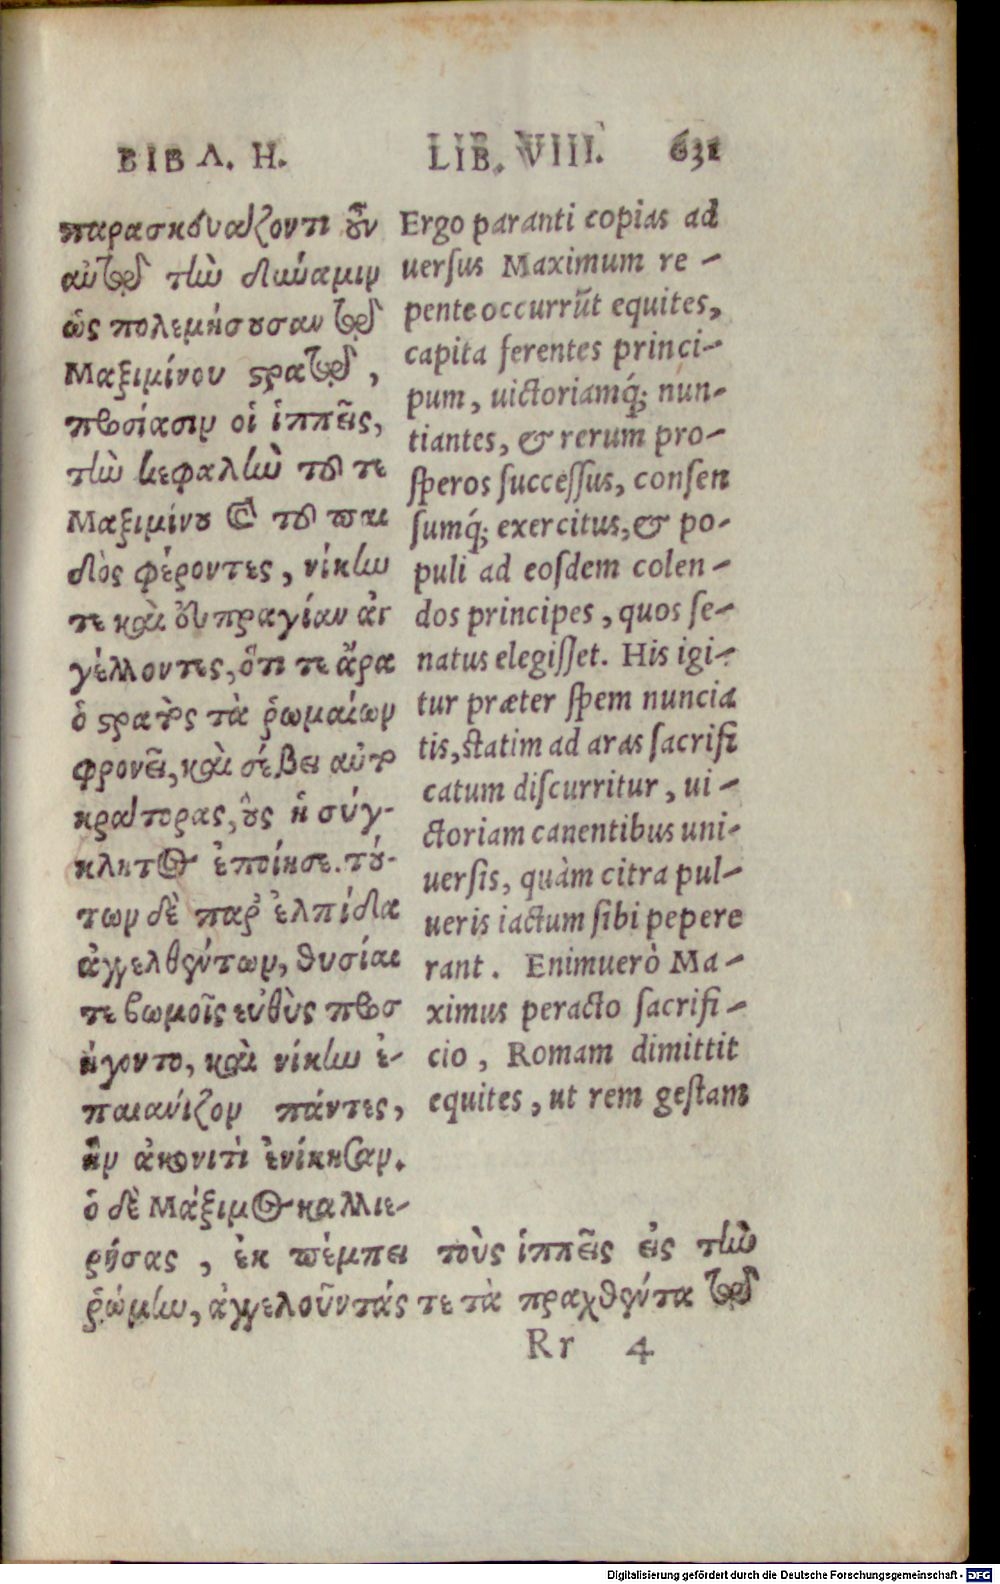 ΒΙΒΛ. Η.
παρασκευάζοντι οὖν
αὐτῷ τὴν δύναμιν
ὡς πολεμήσουσαν τῷ
Μαξιμίνου στρατῷ,
προσίασιν οἱ ἱππεῖς,
τὴν κεφαλὴν τοῦ τε
Μαξιμίνου καὶ τοῦ παι
δὸς φέροντες, νίκην
τε καὶ εὐπραγίαν ἀγ
γέλλοντες, ὅτι τε ἄρα
ὁ στρατὸς τὰ ῥωμαίων
φρονεῖ, καὶ σέβει αὐτο
κράτορας, οὓς ἡ σύγ-
κλητος ἐποίησε. τού-
των δὲ παρ' ἐλπίδα
ἀγγελθέντων, θυσίαι
τε βωμοῖς εὐθὺς προσ
ήγοντο, καὶ νίκην ἐ-
παιάνιζον πάντες,
ἣν ἀκονιτὶ ἐνίκησαν.
ὁ δὲ Μάξιμος καλλιε-
ρήσας, ἐκπέμπει τοὺς ἱππεῖς εἰς τὴν
ῥώμην, ἀγγελοῦντάς τε τὰ πραχθέντα τῷ
LIB. VIII. 631
Ergo paranti copias ad
uersus Maximum re-
pente occurrūt equites,
capita ferentes princi-
pum, uictoriamq́; nun-
tiantes, & rerum pro-
ſperos ſucceſſus, conſen
ſumq́; exercitus, & po-
puli ad eoſdem colen-
dos principes, quos ſe-
natus elegiſſet. His igi-
tur præter ſpem nuncia
tis, ſtatim ad aras ſacrifi
catum diſcurritur, ui-
ctoriam canentibus uni-
uerſis, quàm citra pul-
ueris iactum ſibi pepere
rant. Enimuerò Ma-
ximus peracto ſacrifi-
cio, Romam dimittit
equites, ut rem geſtam
Rr 4
Digitalisierung gefördert durch die Deutsche Forschungsgemeinschaft - DFG